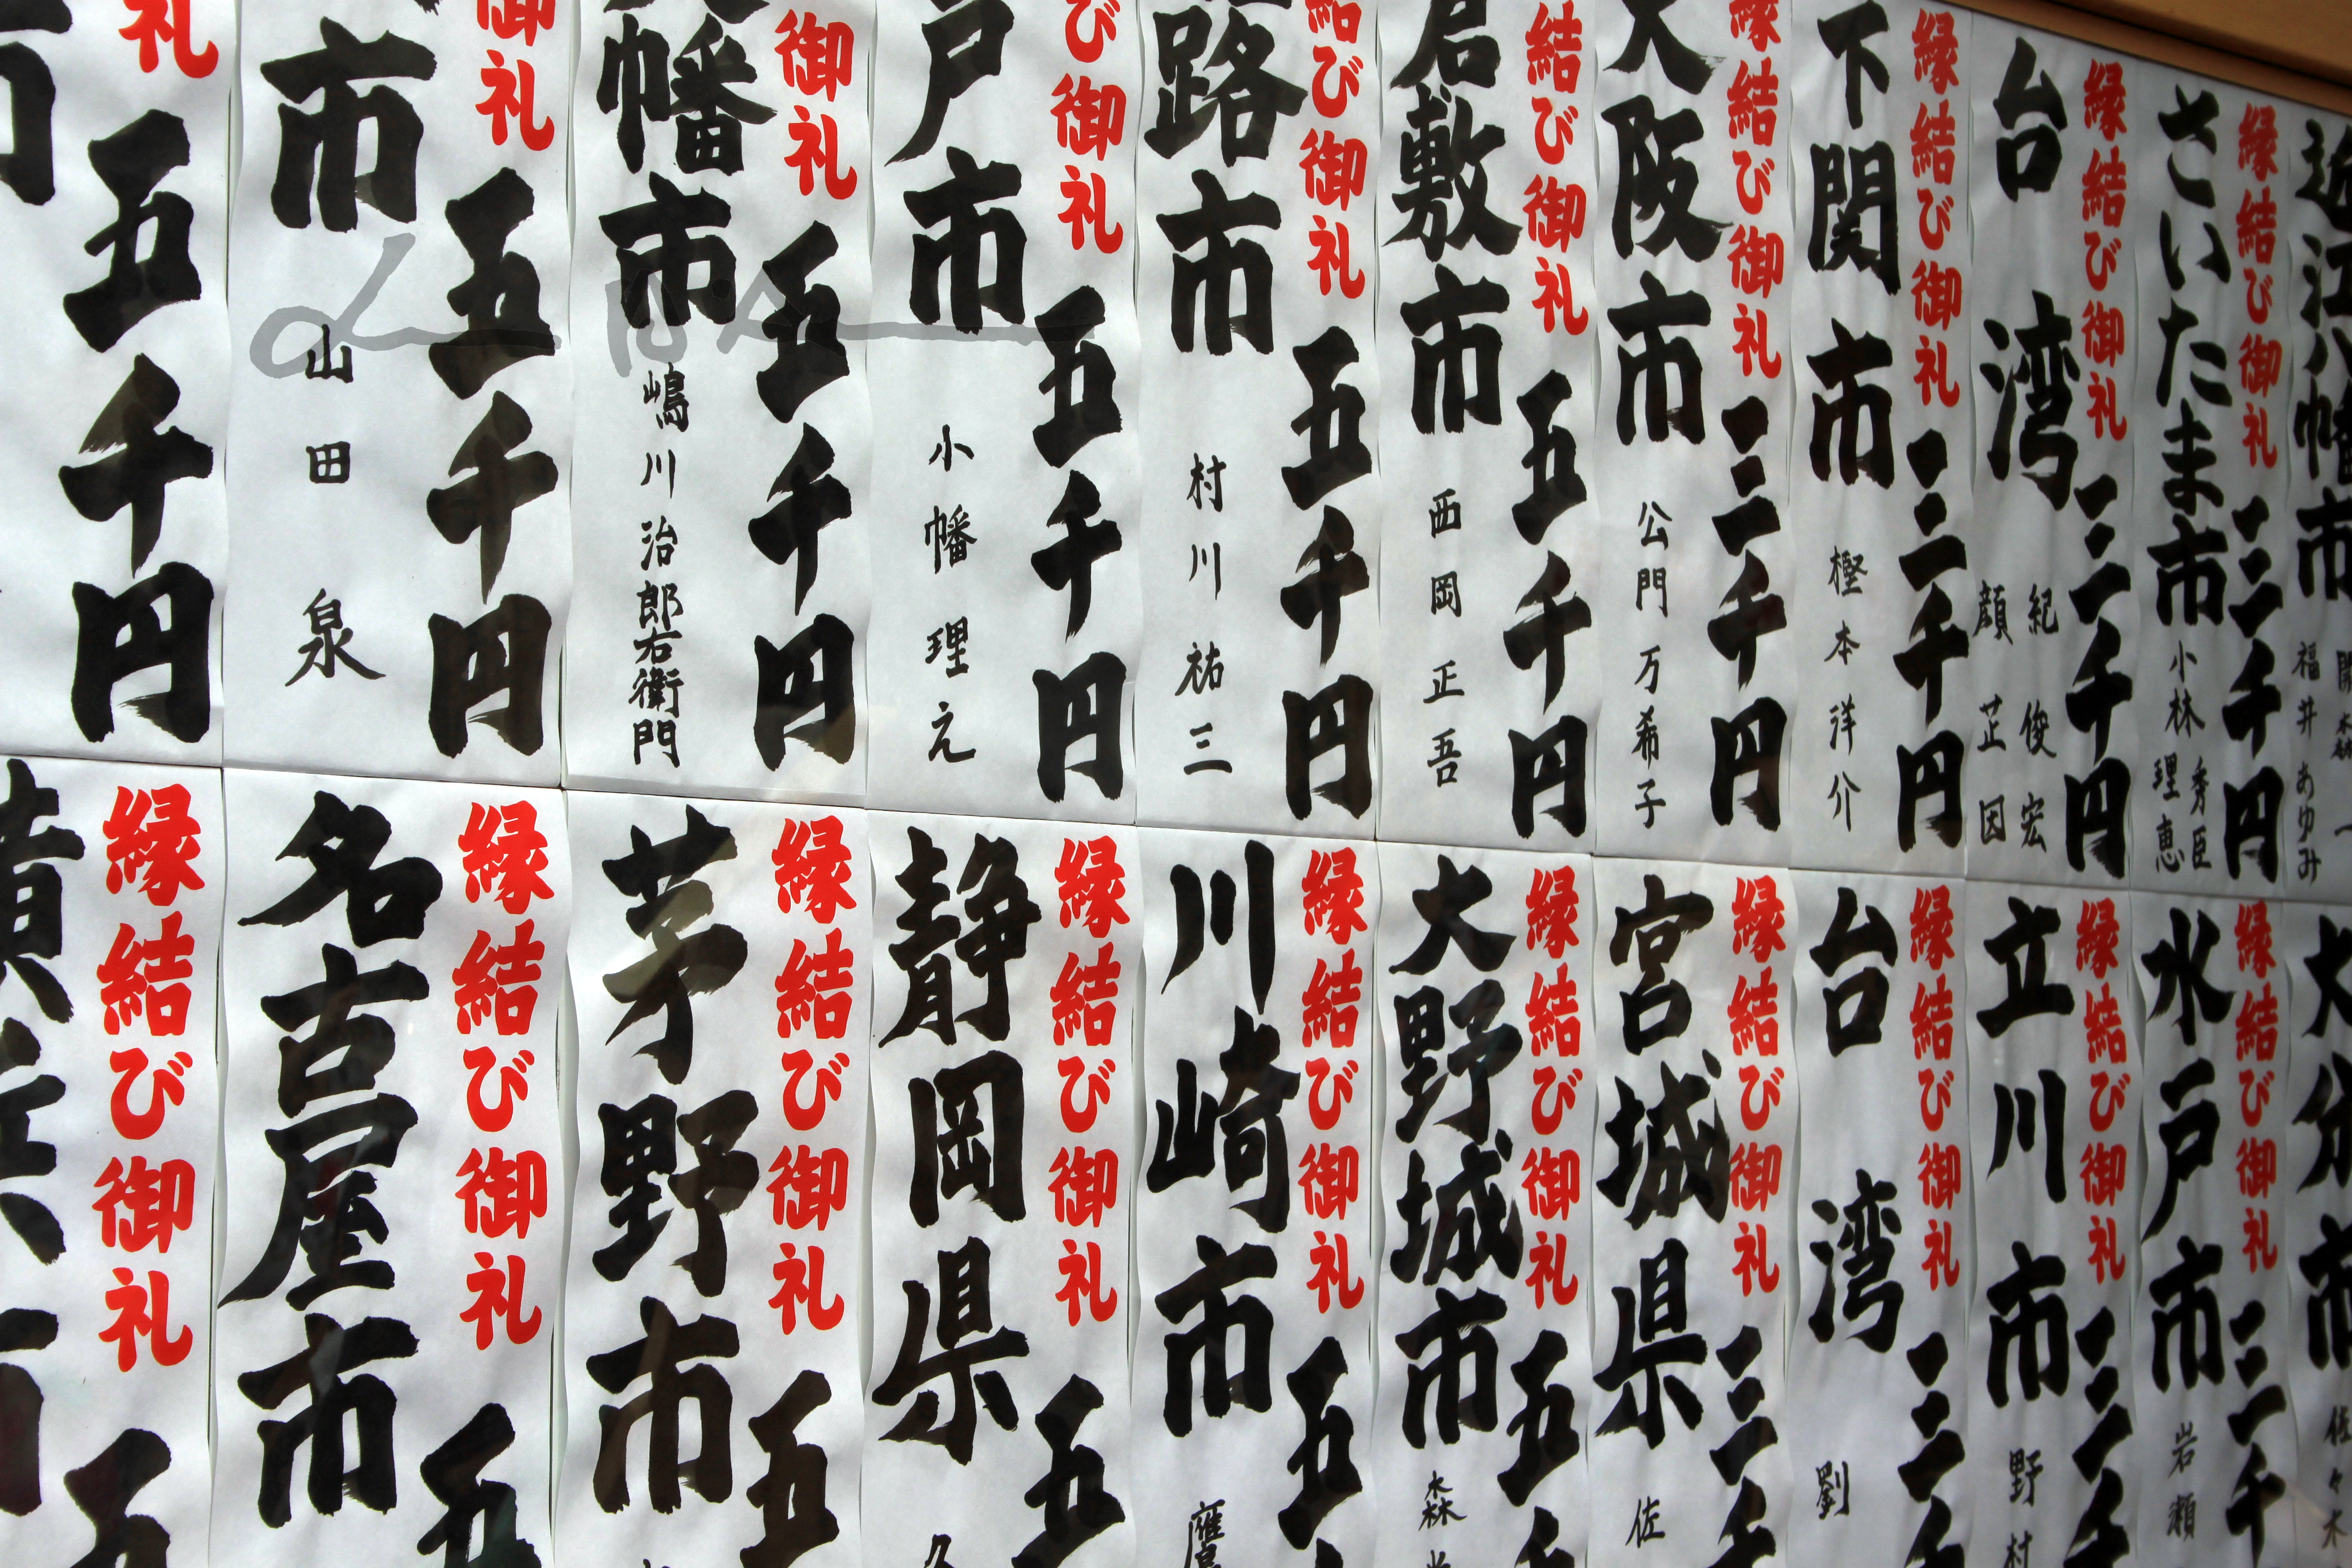 近江八幡市
福井あゆみ
縁結び御礼
三千円
さいたま市
小林秀臣
理恵
縁結び御礼
三千円
台湾
紀俊宏
顔芷因
縁結び御礼
三千円
下関市
樫本洋介
縁結び御礼
三千円
大阪市
公門万希子
結び御礼
五千円
倉敷市
西岡正吾
結び御礼
五千円
路市
村川祐三
び御礼
五千円
戸市
小幡理え
御礼
五千円
幡市
嶋川治郎右衛門
御礼
五千円
市
山田泉
礼
五千円
大分市
佐々木
縁結び御礼
三千
水戸市
岩瀬
縁結び御礼
三千
立川市
野村
縁結び御礼
三千
台湾
劉
縁結び御礼
三千
宮城県
佐
縁結び御礼
五千
大野城市
森
縁結び御礼
五
川崎市
縁結び御礼
五
静岡県
縁結び御礼
五
茅野市
縁結び御礼
五
名古屋市
縁結び御礼
五